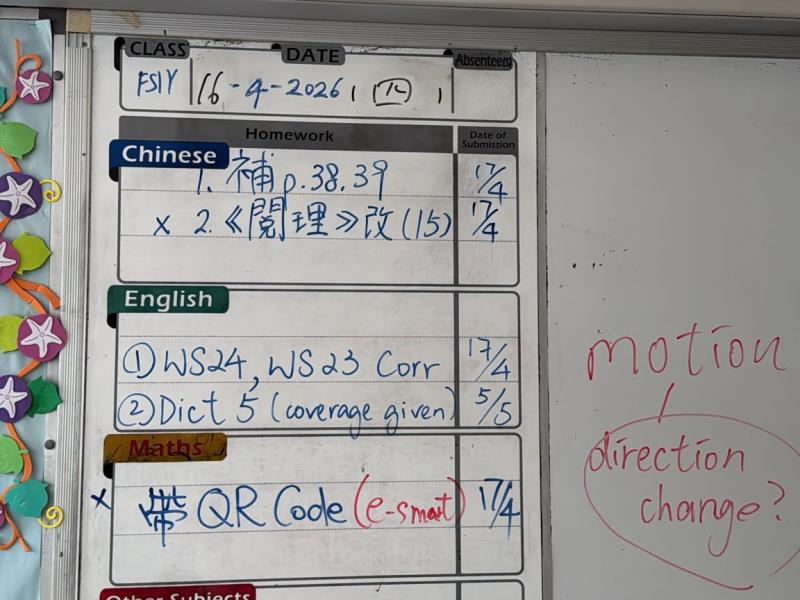 CLASS DATE Absentee(s)
F5IY 16-4-2026 (四)
Homework Date of Submission
Chinese
1. 補 p.38.39 17/4
x 2.《閱理》改(15) 17/4
English
① WS24, WS23 Corr 17/4
② Dict 5 (coverage given) 5/5
Maths
x 帶 QR Code (e-smart) 17/4
Other Subjects
motion
direction
change?